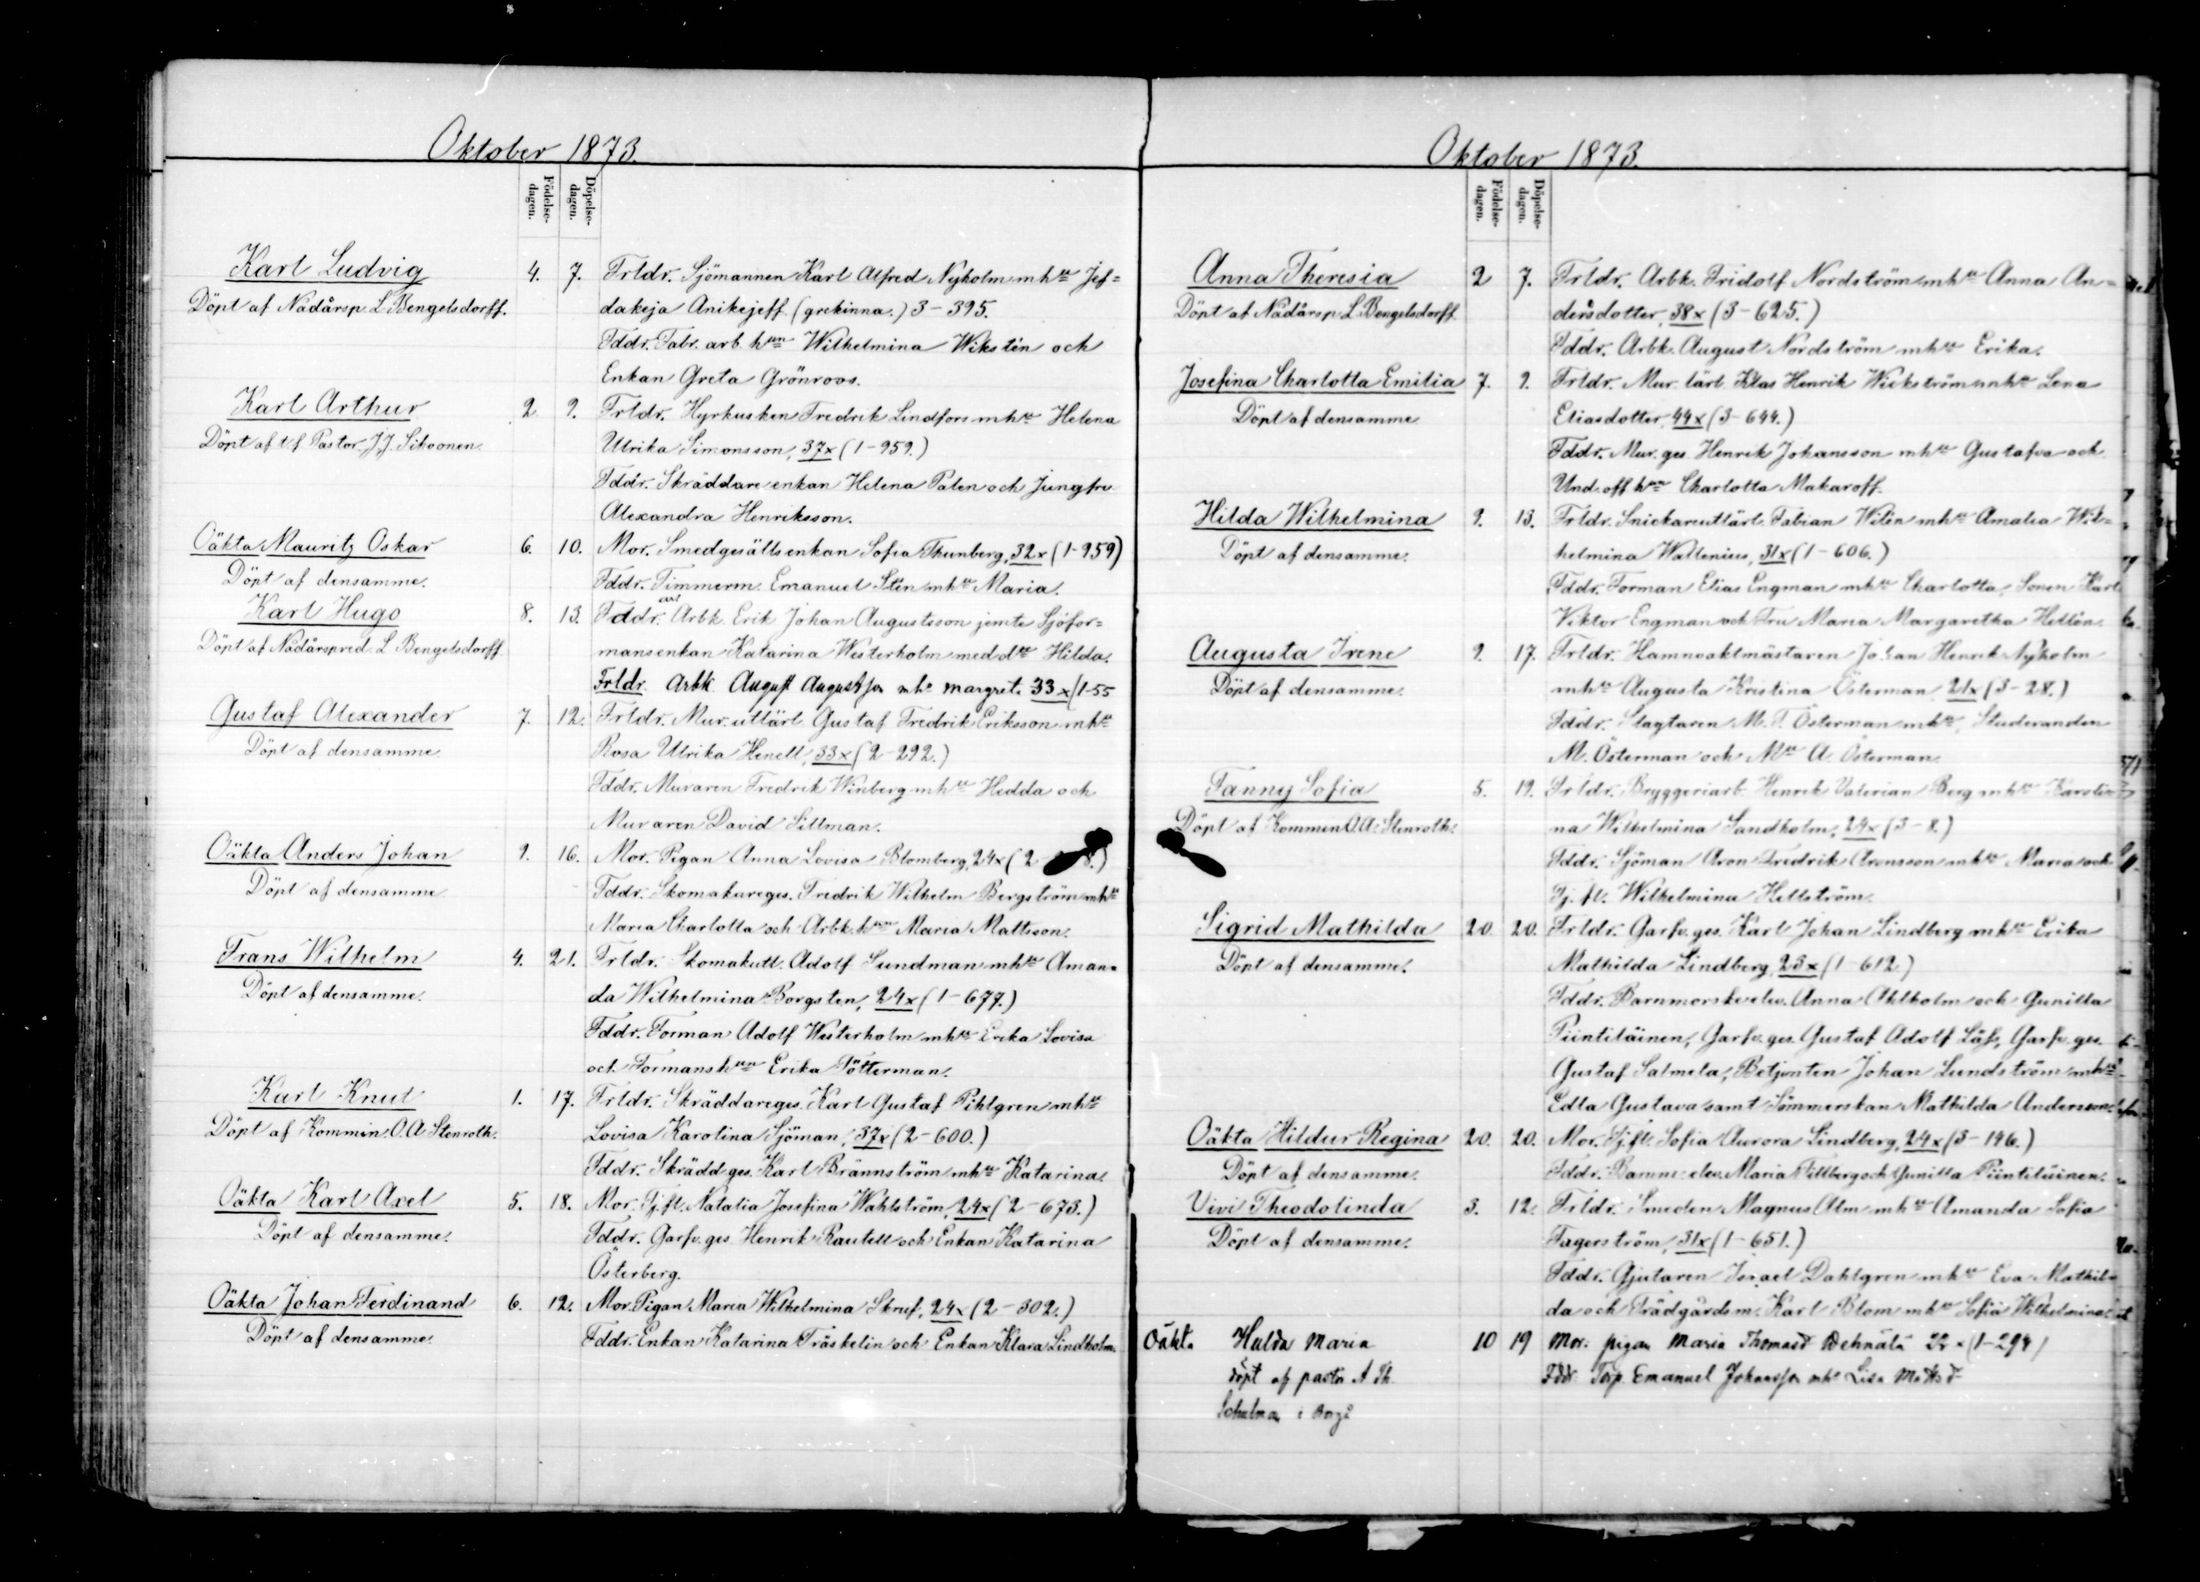 Oktober 1873.
Födelse-dagen.
Döpelse-dagen.
Karl Ludvig 4. 7. Frldr. Sjömannen Karl Alfred Nyholm mhu Jef=
Döpt af Nådårsp L. Bengelsdorff. dakeja Anikejeff (grekinna.) 3-395.
Fddr. Fabr. arb. hun Wilhelmina Wikstén och
Enkan Greta Grönroos.
Karl Arthur 2. 9. Frldr. Hyrkusken Fredrik Lindfors mhu Helena
Döpt af t.f. Pastor J.J. Sihvonen. Ulrika Simonsson, 37x (1-959.)
Fddr. Skräddare enkan Helena Palen och Jungfru
Alexandra Henriksson.
Oäkta Mauritz Oskar 6. 10. Mor. Smedgesällsenkan Sofia Thunberg, 32x (1-959)
Döpt af densamme. Fddr. Timmerm. Emanuel Sten mhu Maria.
Karl Hugo 8. 13. Fddr. Arbk. Erik Johan Augustsson jemte Sjöfor=
Döpt af Nådårspred. L. Bengelsdorff mansenkan Katarina Westerholm med dtr Hilda.
Frldr. Arbk August Augustsson mhu Margreta 33x (1-55
Gustaf Alexander 7. 12. Frldr. Mur. utlärl. Gustaf Fredrik Eriksson mhu
Döpt af densamme. Rosa Ulrika Henell, 33x (2-292.)
Fddr. Muraren Fredrik Winberg mhu Hedda och
Muraren David Sillman.
Oäkta Anders Johan 9. 16. Mor. Pigan Anna Lovisa Blomberg, 24x (2- 8.)
Döpt af densamme. Fddr. Skomakareges. Fredrik Wilhelm Bergström mhu
Maria Charlotta och Arbk. hun Maria Mattsson.
Frans Wilhelm 4. 21. Frldr. Skomakutl. Adolf Sundman mhu Aman=
Döpt af densamme. da Wilhelmina Borgsten, 24x (1-677.)
Fddr. Forman Adolf Westerholm mhu Erika Lovisa
och Formanshun Erika Pötterman.
Karl Knut 1. 17. Frldr. Skräddareges. Karl Gustaf Pihlgren mhu
Döpt af Kommin. O.A. Stenroth. Lovisa Karolina Sjöman, 37x (2-600.)
Fddr. Skrädd.ges. Karl Brännström mhu Katarina.
Oäkta Karl Axel 5. 18. Mor. Tj.fl. Natalia Josefina Wahlström, 24x (2-673.)
Döpt af densamme. Fddr. Garfv. ges. Henrik Rautell och Enkan Katarina
Österberg.
Oäkta Johan Ferdinand 6. 12. Mor. Pigan Maria Wilhelmina Skruf, 24x (2-302.)
Döpt af densamme. Fddr. Enkan Katarina Träskelin och Enkan Klara Lindholm.
Oktober 1873.
Födelse-dagen.
Döpelse-dagen.
Anna Theresia 2 7. Frldr. Arbk. Fridolf Nordström mhu Anna An=
Döpt af Nådårsp. L. Bengelsdorff dersdotter, 38x (3-625.)
Fddr. Arbk. August Nordström mhu Erika.
Josefina Charlotta Emilia 7. 9. Frldr. Mur. lärl. Klas Henrik Wickström mhu Lena
Döpt af densamme Eliasdotter, 44x (3-644.)
Fddr. Mur. ges. Henrik Johansson mhu Gustafva och
Und.off. hun Charlotta Makaroff.
Hilda Wilhelmina 9. 13. Frldr. Snickareutlärl. Fabian Wilén mhu Amalia Wil=
Döpt af densamme. helmina Wallenius, 31x (1-606.)
Fddr. Forman Elias Engman mhu Charlotta, Sonen Karl
Viktor Engman och Fru Maria Margaretha Hellén.
Augusta Irene 9. 17. Frldr. Hamnvaktmästaren Johan Henrik Nyholm
Döpt af densamme. mhu Augusta Kristina Österman, 21x (3-28.)
Fddr. Slagtaren M. F. Österman mhu, Studeranden
M. Österman och A. Österman.
Fanny Sofia 5. 19. Frldr. Bryggeriarb. Henrik Valerian Berg mhu Karoli=
Döpt af Kommin O.A. Stenroth. na Wilhelmina Sandholm, 24x (3-8.)
Fddr. Sjöman Aron Fredrik Aronsson mhu Maria och
Tj. fl. Wilhelmina Hellström.
Sigrid Mathilda 20. 20. Frldr. Garfv. ges. Karl Johan Lindberg mhu Erika
Döpt af densamme. Mathilda Lindberg, 23x (1-612)
Fddr. Barnmorskeelev. Anna Ahlholm och Gunilla
Piintiläinen, Garfv. ges. Gustaf Adolf Löf, Garfv. ges.
Gustaf Salmela, Betjenten Johan Lundström mhu
Edla Gustava samt Sömmerskan Mathilda Andersson.
Oäkta Hildur Regina 20. 20. Mor. Tj.fl. Sofia Aurora Lindberg, 24x (3-146.)
Döpt af densamme. Fddr. Barnm. elev. Maria Tillberg och Gunilla Piintiläinen.
Vivi Theodolinda 3. 12. Frldr. Smeden Magnus Alm mhu Amanda Sofia
Döpt af densamme. Fagerström, 31x (1-651.)
Fddr. Gjutaren Israel Dahlgren mhu Eva Mathil=
da och Trädgårdsm. Karl Blom mhu Sofia Wilhelmina.
Oäkta Hulda Maria 10 19 Mor: pigan Maria Thomasd (1-294)
döpt af pastor A Th. Fddr Torp. Emanuel Johansson mhu Lisa Mattsd
Schulman i